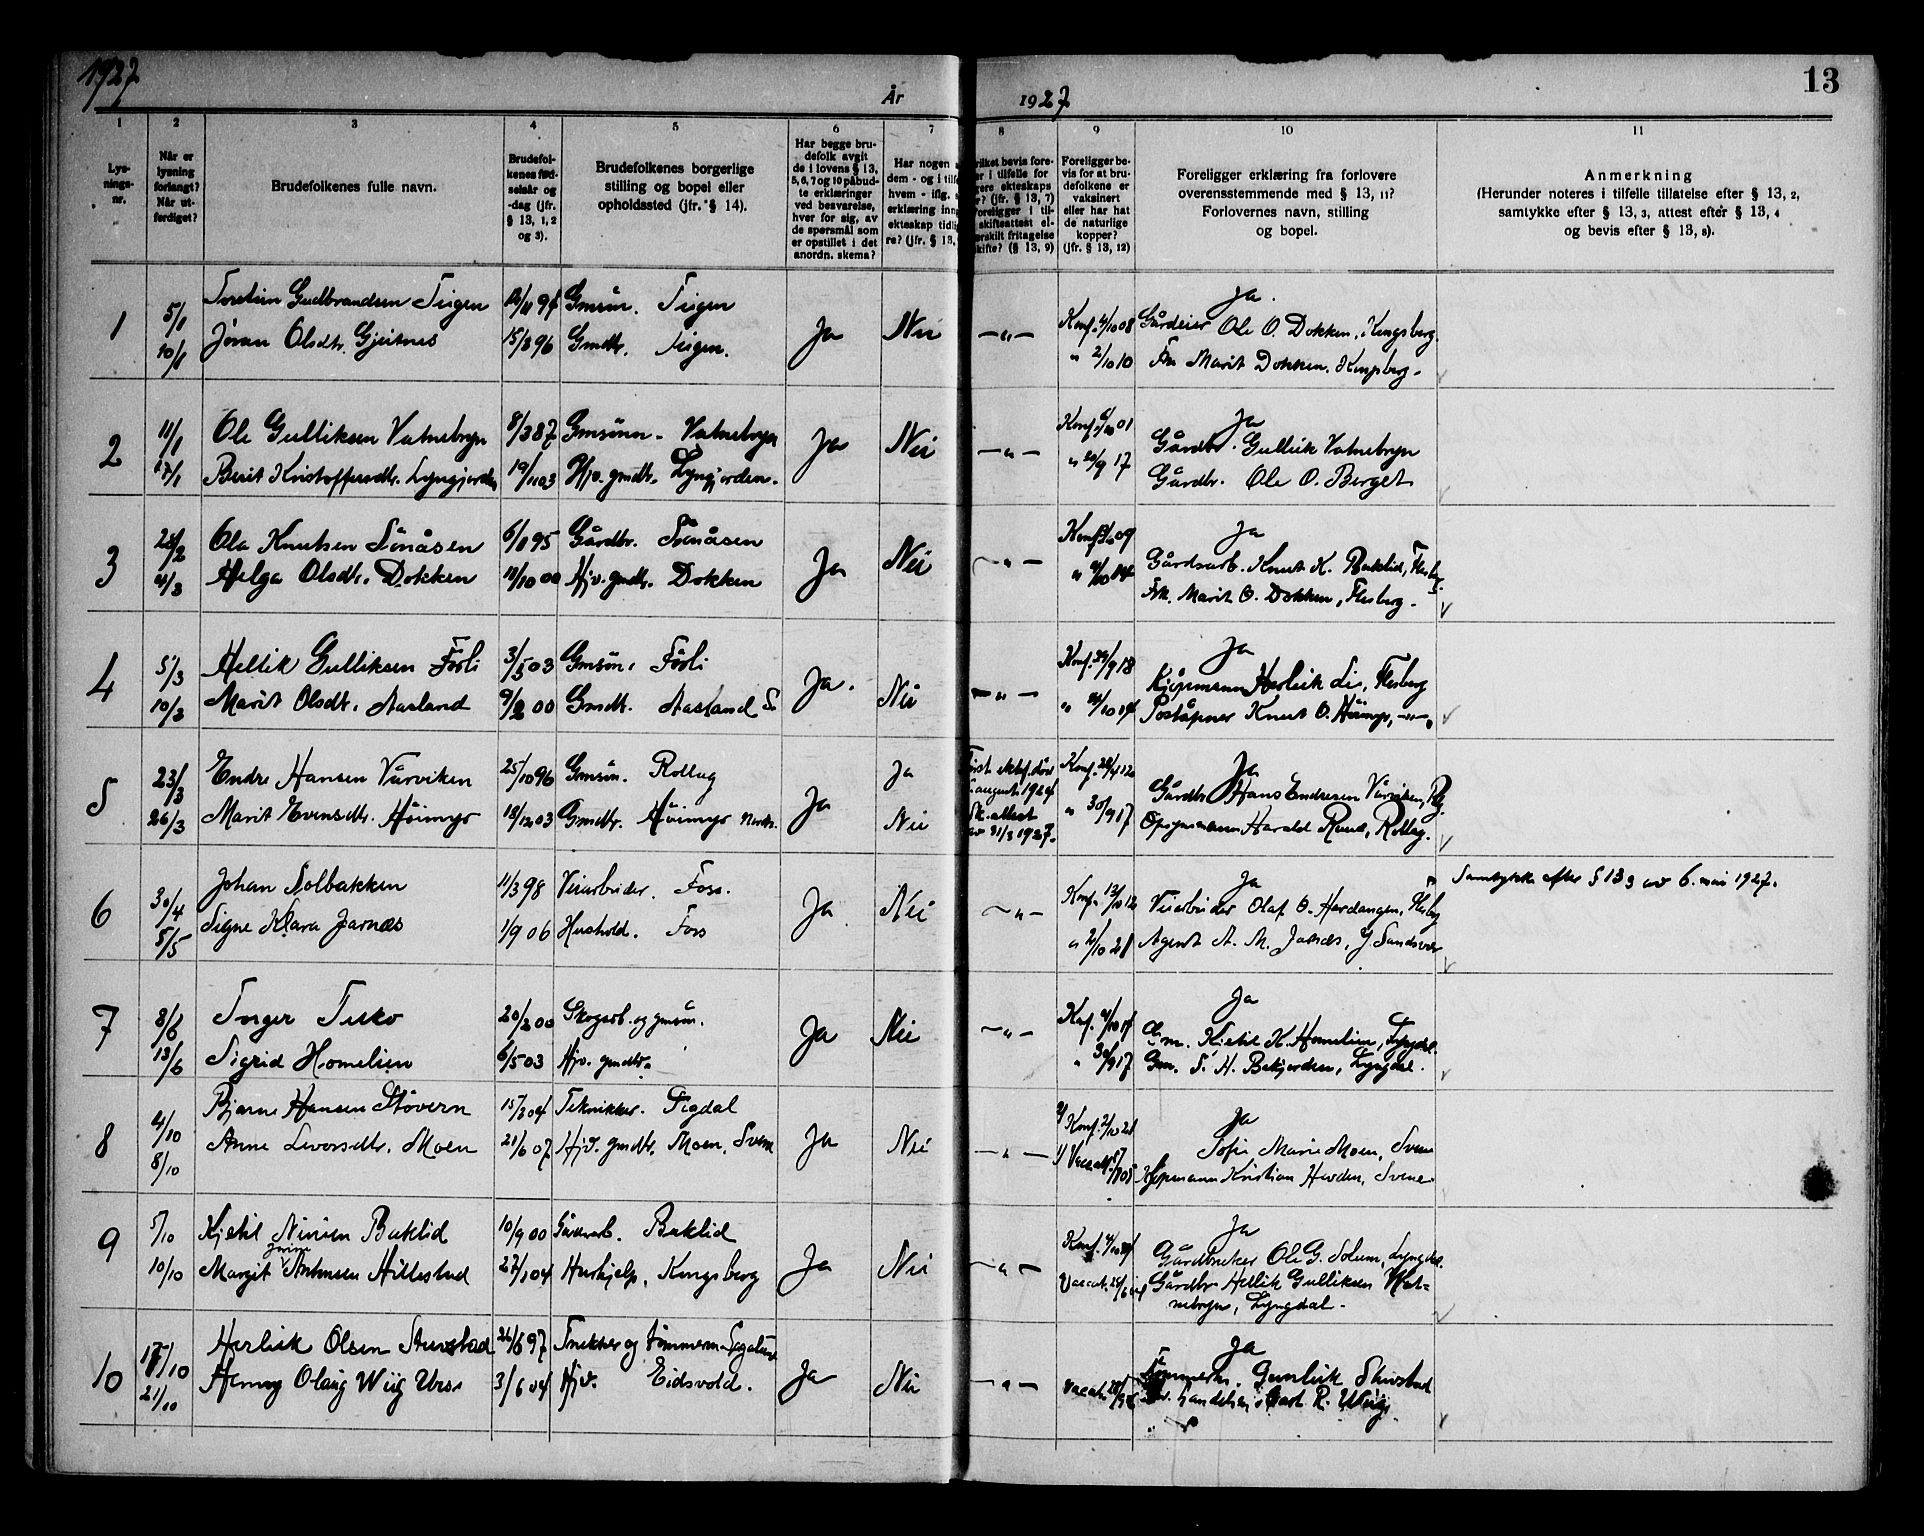 1927
År
1927
13
1
2
3
4
5
6
7
8
9
10
11
Lys-
nings-
nr.
Når er
lysning
forlangt?
Når ut-
ferdiget?
Brudefolkenes fulle navn.
Brudefol-
kenes fød-
selsår og
-dag (jfr.
§ 13, 1, 2
og 3).
Brudefolkenes borgerlige
stilling og bopel eller
opholdssted (jfr. § 14).
Har begge bru-
defolk avgit
de i lovens § 13,
5, 6, 7 og 10 påbud-
te erklæringer
ved besvarelse,
hver for sig, av
de spørsmål som
er opstillet i det
anordn. skema?
Har nogen
dem - og i tilf
hvem - iflg.
erklæring inn
ekteskap tidl
re? (jfr. § 13,
ilket bevis fore-
er i tilfelle for
ere ekteskaps
? (jfr. § 13, 7)
oreligger i til-
skifteattest el-
erskilt fritagelse
skifte? (§ 13, 9)
Foreligger be-
vis for at bru-
defolkene er
vaksinert
eller har hat
de naturlige
kopper?
(jfr. § 13, 12)
Foreligger erklæring fra forlovere
overensstemmende med § 13, 11?
Forlovernes navn, stilling
og bopel.
Anmerkning
(Herunder noteres i tilfelle tillatelse efter § 13, 2,
samtykke efter § 13, 3, attest efter § 13, 4
og bevis efter § 13, 8).
1
5/1
10/1
Torstein Gudbrandsen Teigen
Jöran Olsdtr. Gjeitnes
15/3 96
Gmsön. Teigen
Gmdtr. Teigen.
Ja
Nei
— " —
Konf. 4/10 08
" 2/10 10
Ja.
Gårdeier Ole O. Dokken, Kongsberg.
Fru Marit Dokken. Kongsberg.
2
11/1
17/1
Ole Gulliksen Vatnebryn
Berit Kristoffersdtr. Lyngjorden
8/3 87
19/11 03
Gmsönn. Vatnebryn
Hjv. gmdtr. Lyngjorden.
Ja
Nei
— " —
Ja
Gårdbr. Gullik Vatnebryn
Gårdbr. Ole O. Berget
3
4/3
Ola Knutsen Sönåsen
Helga Olsdtr. Dokken
Gårdbr. Sönåsen
Hjv. gmdtr. Dokken
Ja
Nei
— " —
Ja
Gårdsarb. Knut K. Baklid, Flesberg.
Frk. Marit O. Dokken, Flesberg.
4
5/3
10/3
Hellik Gulliksen Fösli
Marit Olsdtr. Aasland
3/5 03
9/2 00
Gmsön. Fösli
Gmdtr. Aasland S.
Ja.
Nei
— " —
Konf. 29/9 18
Ja
Kjöpmann Herleik Li, Flesberg
Poståpner Knut O. Höimyr, — " —
5
23/3
26/3
Endre Hansen Vårviken
Marit Evensdtr. Höimyr
25/10 96
18/12 03
Gmsön. Rollag
Gmdtr. Höimyr Nordre.
Ja
Ja
Nei
august 1924
Sk. attest
av 31/3 1927.
" 30/9 17
Ja
Gårdbr. Hans Endresen Vårviken, Rlg.
Opsynsmann Harald Ruud, Rollag.
6
30/4
5/5
Johan Solbakken
Signe Klara Jarnæs
11/3 98
1/9 06
Veiarbeider. Foss.
Hushold. Foss
Ja
Nei
— " —
Konf. 13/10 12
" 2/10 21
Ja
Veiarbeider Olaf O. Hardangen, Flesberg
Agent A. M. Jarnæs, Y. Sandsvær
Samtykke efter § 13 3 av 6. mai 1927.
7
8/6
13/6
Torger Tekso
Sigrid Homelien
20/2 00
6/5 03
Skogsarb. og gmsön.
Hjv. gmdtr.
Ja
Nei
— " —
" 30/9 17
Ja
Gm. Kittil K. Homelien, Lyngdal.
Gm. S. H. Bekjorden, Lyngdal.
8
4/10
8/10
Bjarne Hansen Stövern
Anne Levorsdtr. Moen
15/3 04
21/6 07
Tekniker. Sigdal
Hjv. gmdtr. Moen, Svene
Ja
Nei
— " —
Ja
Sofie Marie Moen, Svene
Kjöpmann Kristian Hvoden, Svene
9
5/10
10/10
Kjetil Nirisen Baklid
Jorine
Margit Antonsen Hillestad
10/9 00
27/1 04
Gårdsarb. Baklid
Hushjelp, Kongsberg
Ja
Nei
— " —
Ja
Gårdbruker Ole G. Solum, Lyngdal.
Gårdbr. Hellik Gulliksen Vat-
nebryn, Lyngdal.
10
17/10
21/10
Herleik Olsen Skuestad
Henny Olaug Wiig
26/6 97
3/6 04
Snekker og tömmerm.
Hjv. Eidsvold.
Ja
Nei
— " —
Ja
Tömmerm. Gunleik Skuestad
R. Wiig.